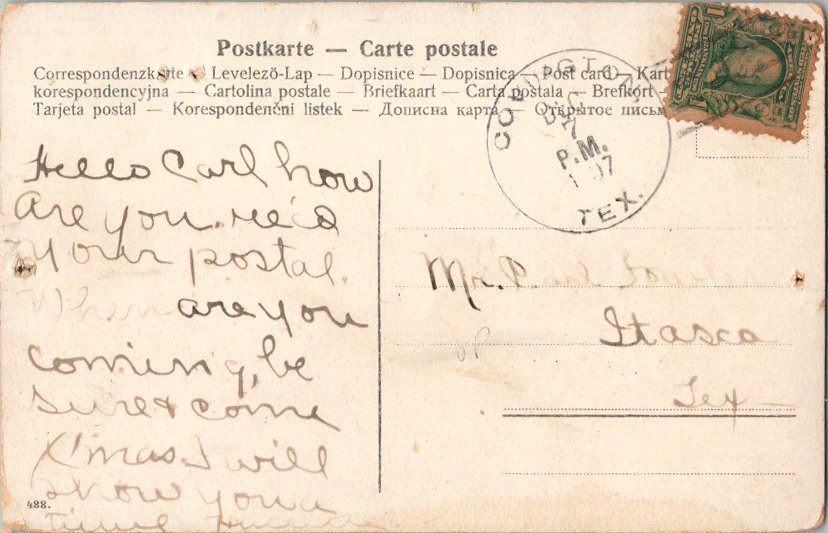 Postkarte — Carte postale
Correspondenzkarte — Levelező-Lap — Dopisnice — Dopisnica — Post card — Kart
korespondencyjna — Cartolina postale — Briefkaart — Carta postala — Brefkort —
Tarjeta postal — Korespondenčni listek — Дописна карта — Открытое письм
COVINGTON
DEC
7
P.M.
1907
TEX.
Hello Carl how
are you. rec'd
your postal.
When are you
coming, be
sure & come
X'mas. I will
show you a
time
Mr. Carl
Itasca
Tex
488.